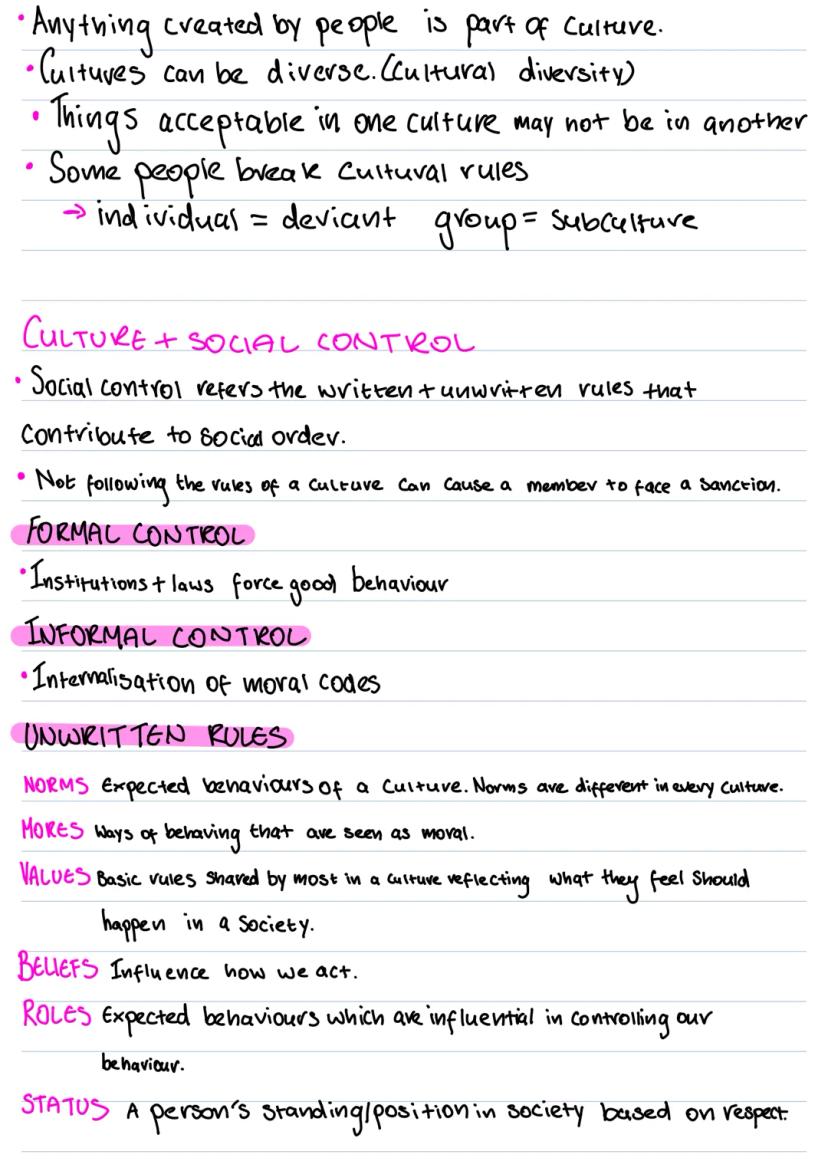 • Anything created by people is part of Culture.
• Cultures can be diverse. (Cultural diversity)
• Things acceptable in one culture may not be in another
• Some people break cultural rules
→ individual = deviant group = subculture
CULTURE + SOCIAL CONTROL
• Social control refers the written + unwritten rules that
contribute to social order.
• Not following the rules of a culture can cause a member to face a sanction.
FORMAL CONTROL
• Institutions + laws force good behaviour
INFORMAL CONTROL
• Internalisation of moral codes
UNWRITTEN RULES
NORMS Expected behaviours of a culture. Norms are different in every culture.
MORES Ways of behaving that are seen as moral.
VALUES Basic rules shared by most in a culture reflecting what they feel should
happen in a society.
BELIEFS Influence how we act.
ROLES Expected behaviours which are influential in controlling our
behaviour.
STATUS A person's standing/position in society based on respect.